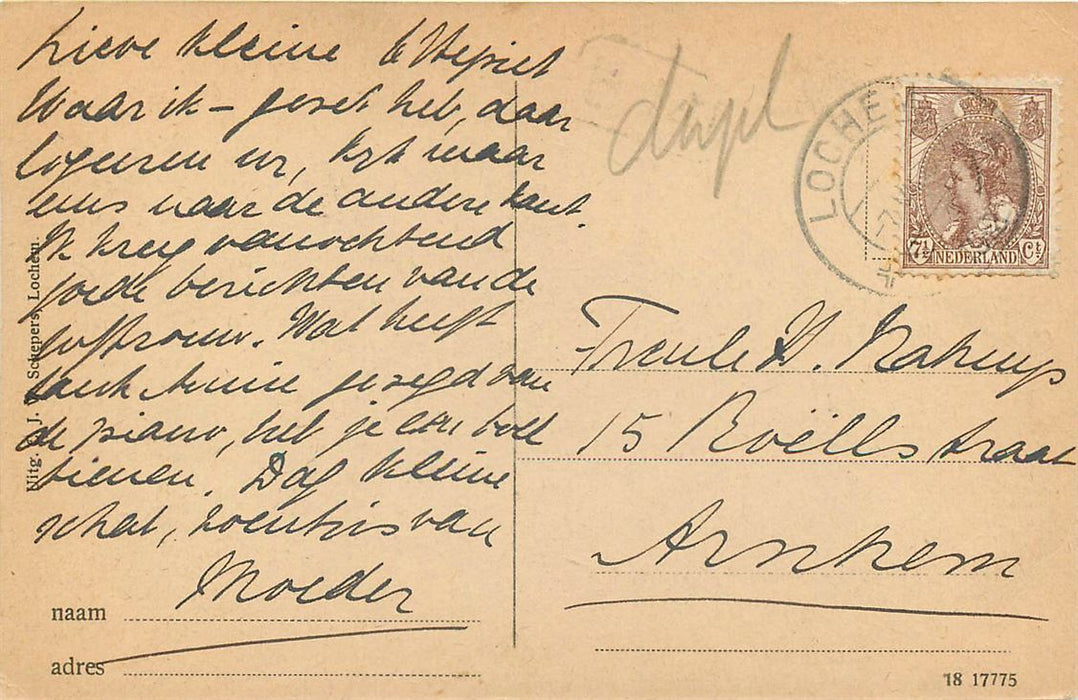 Lieve kleine
Waar ik - gezet heb, daar
logeeren we, kijk maar
eens naar de andere kant.
Ik kreeg vanochtend
goede berichten van de
juffrouw. Wat heeft
gezegd van
de piano, heb je een
Dag kleine
schat, zoentjes van
Moeder
naam
adres
Uitg. J. Schepers, Lochem.
dupl
LOCHEM
7½ NEDERLAND Ct
Freule H.
15 Roëllstraat
Arnhem
18 17775